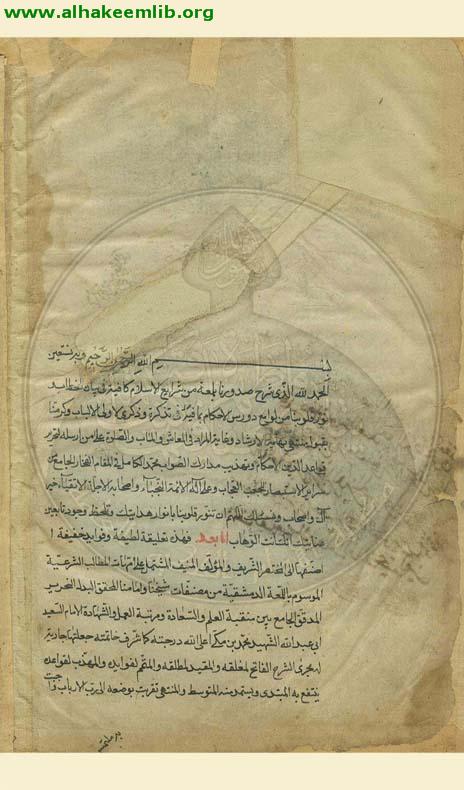 www.alhakeemlib.org
بسم الله الرحمن الرحيم وبه نستعين
الحمد لله الذى شرح صدورنا بلمعة من شرايع الاسلام كافية فى بيان الخطاب
نور قلوبنا من لوامع دروس الاحكام بما فيه تذكرة وذكرى لاولى الالباب وكرمنا
بقبول منتهى نهاية الارشاد وغاية المراد فى المعاش والماب والصلوة على من ارسله لتحرير
قواعد الدين وتهذيب مدارك الصواب محمد الكامل فى المقام الفخار الجامع من
سراير الاستبصار للعجب العجاب وعلى اله الائمة النجباء واصحابه الاجلة الاتقياء خير
ال واصحاب ونسئلك اللهم ان تنور قلوبنا بانوار هدايتك وتلحظ وجودنا بعين
عنايتك انك انت الوهاب اما بعد فهذه تعليقة لطيفة وفوايد خفيفة
اضفتها الى المختصر الشريف والمؤلف المنيف المشتمل على امهات المطالب الشرعية
الموسوم باللمعة الدمشقية من مصنفات شيخنا وامامنا المحقق البدل النحرير
المدقق الجامع بين منقبة العلم والسعادة ومرتبة العمل والشهادة الامام السعيد
ابى عبد الله الشهيد محمد بن مكى اعلى الله درجته كما شرف خاتمته جعلتها جارية
له مجرى الشرح الفاتح لمغلقه والمقيد لمطلقه والمتمم لفوايده والمهذب لقواعده
ينتفع به المبتدى ويستمد منه المتوسط والمنتهى تقربت بوضعه الى رب الارباب واجبت